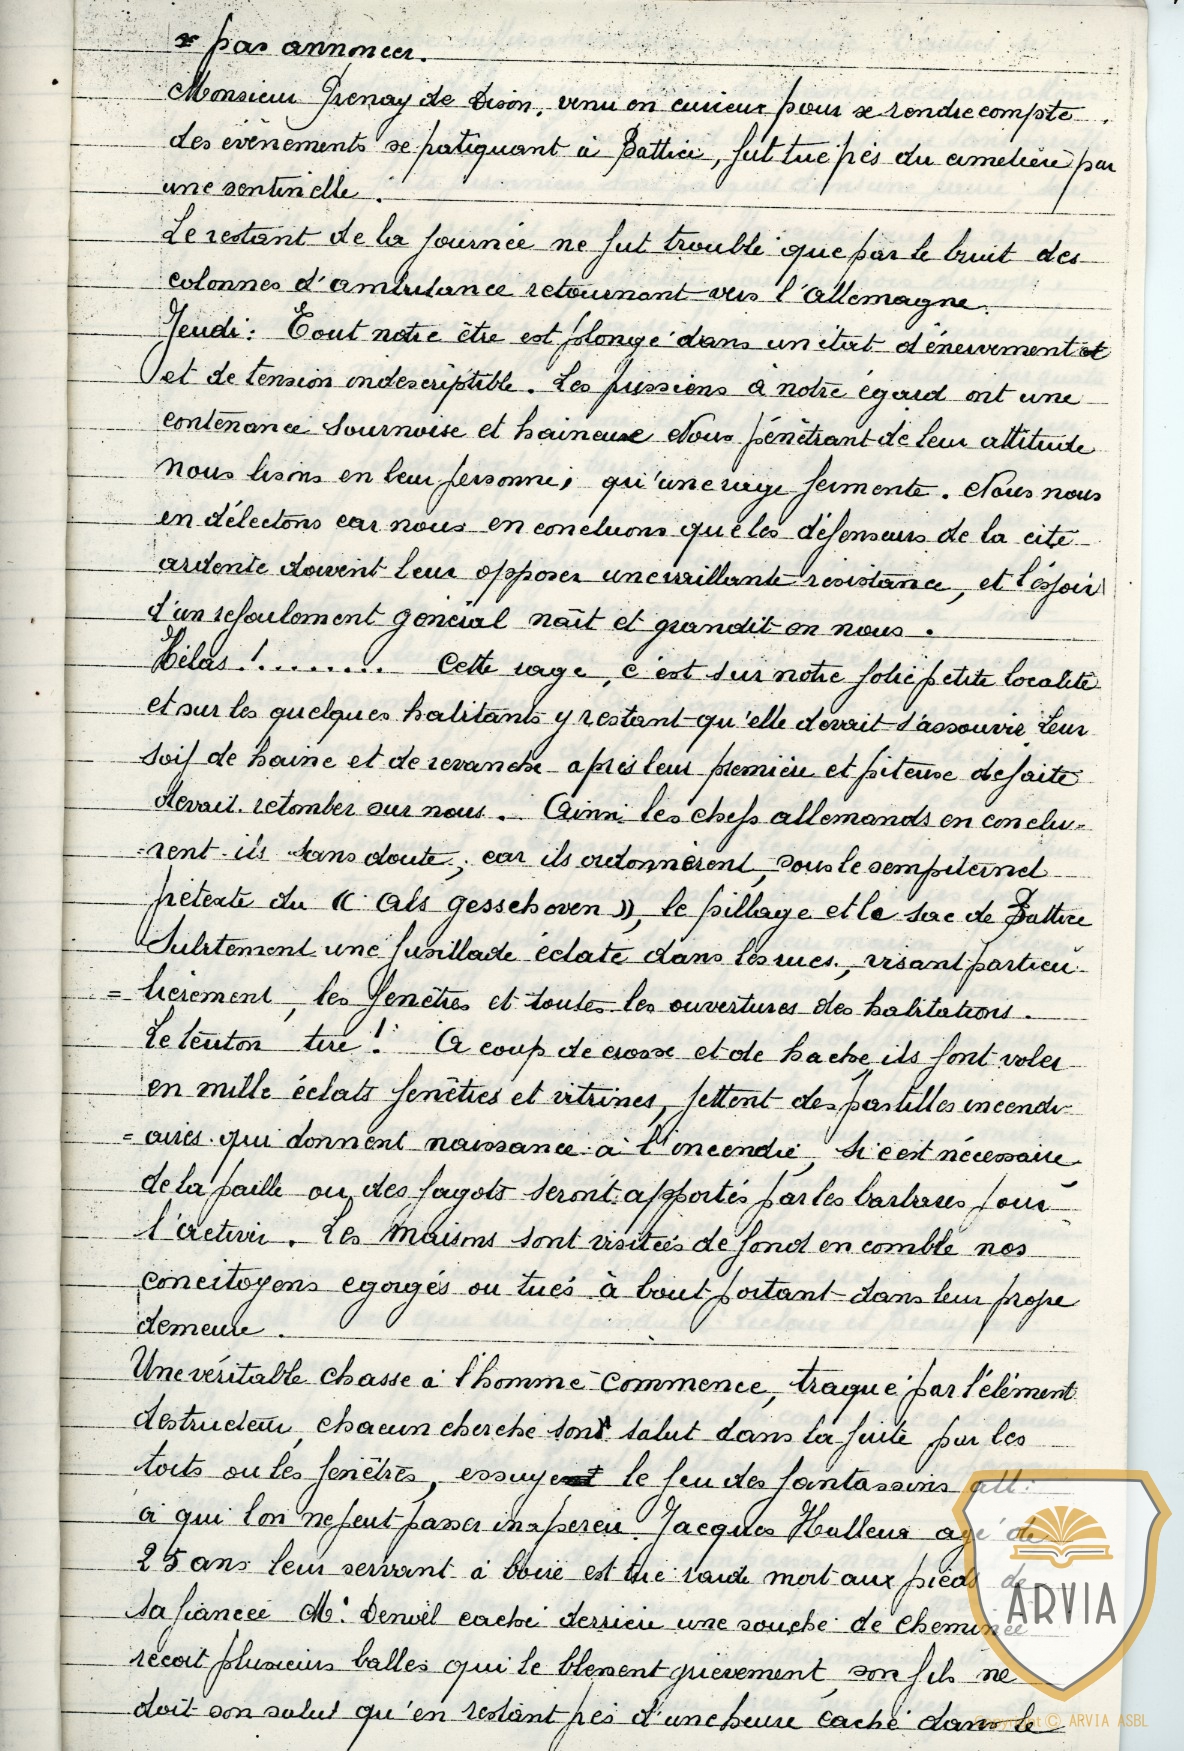 * pas annoncer.
Monsieur Grenay de Dison, venu en curieux pour se rendre compte
des évènements se patiquant à Battice, fut tué près du cimetière par
une sentinelle.
Le restant de la journée ne fut troublé que par le bruit des
colonnes d'ambulance retournant vers l'Allemagne.
Jeudi: Tout notre être est plongé dans un état d'énervement
et de tension indescriptible. Les prussiens à notre égard ont une
contenance sournoise et haineuse Nous pénétrant de leur attitude
nous lisons en leur personne, qu'une rage fermente. Nous nous
en délectons car nous en concluons que les défenseurs de la cité
ardente doivent leur opposer une vaillante résistance, et l'éspoir
d'un refoulement général naît et grandit en nous.
Hélas !........ Cette rage, c'est sur notre jolie petite localité
et sur les quelques habitants y restant qu'elle devait s'assouvir Leur
soif de haine et de revanche après leur première et piteuse défaite
devait retomber sur nous. Ainsi les chefs allemands en conclu-
=rent-ils sans doute, car ils ordonnèrent, sous le sempiternel
prétexte du (( Als gesschoven )), le pillage et le sac de Battice
Subitement une fusillade éclate dans les rues, visant particu-
=lièrement, les fenêtres et toutes les ouvertures des habitations.
Le teuton tire! A coup de crosse et de hache ils font voler
en mille éclats fenêtres et vitrines, jettent des pastilles incendi-
=aires qui donnent naissance à l'incendie, si c'est nécessaire
de la paille ou des fagots seront apportés par les barbares pour
l'activer. Les maisons sont visitées de fond en comble nos
concitoyens egorgés ou tués à bout portant dans leur propre
demeure.
Une véritable chasse à l'homme commence, traqué par l'élément
destructeur, chacun cherche son salut dans la fuite par les
toits ou les fenêtres, essuye le feu des fantassins all.
à qui l'on ne peut passer inaperçu. Jacques Halleux agé de
25 ans leur servant à boire est tué raide mort aux pieds de
sa fiancée Mr Denoël caché derrière une souche de cheminée
reçoit plusieurs balles qui le blessent grievement, son fils ne
doit son salut qu'en restant près d'une heure caché dans le
ARVIA
Copyright © ARVIA ASBL